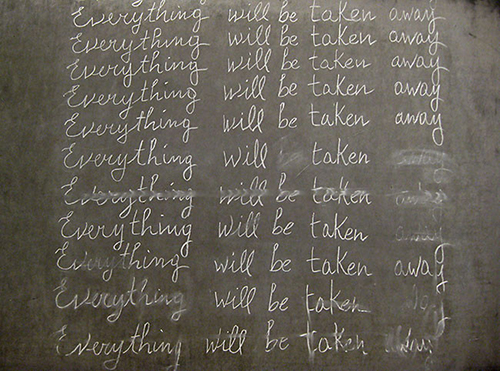 Everything will be taken away
Everything will be taken away
Everything will be taken away
Everything will be taken away
Everything will be taken away
Everything will taken
Everything will be taken
Everything will be taken
Everything will be taken away
Everything will be taken
Everything will be taken